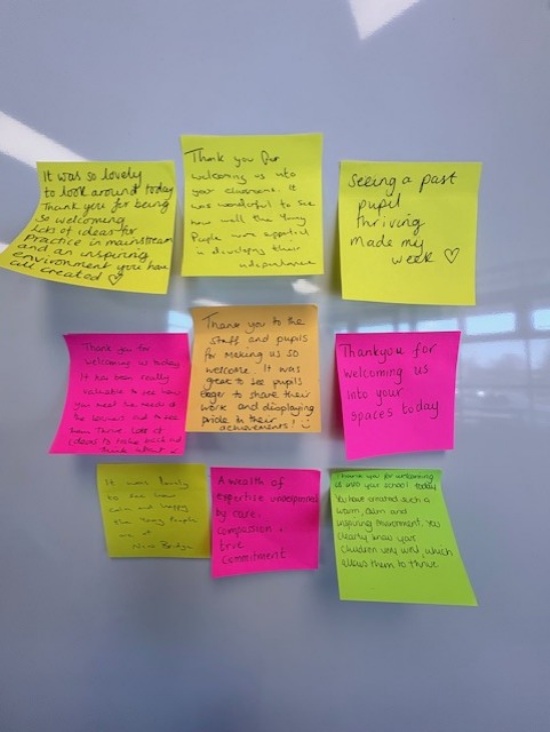 It was so lovely
to look around today
Thank you for being
so welcoming
lots of ideas for
practice in mainstream
and an inspiring
environment you have
all created ♡
Thank you for
welcoming us into
your classrooms. It
was wonderful to see
how well the Young
People were supported
in developing their
independence
Seeing a past
pupil
thriving
made my
week ♡
Thank you for
welcoming us today
It has been really
valuable to see how
you meet the needs of
the learners and to see
them thrive. Lots of
ideas to take back and
think about
Thank you to the
staff and pupils
for making us so
welcome. It was
great to see pupils
eager to share their
work and displaying
pride in their
achievements! :)
Thankyou for
welcoming us
into your
spaces today
It was lovely
to see how
calm and happy
the Young People
are at
New Bridge
A wealth of
expertise underpinned
by care,
compassion +
true
commitment
Thank you for welcoming
us into your school today
You have created such a
warm, calm and
inspiring environment. You
clearly know your
children very well, which
allows them to thrive